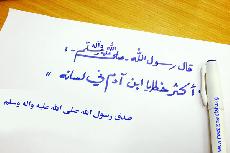 قال رسول الله - صلى الله عليه وآله وسلم - :
" أكثر خطايا ابن آدم في لسانه "
صدق رسول الله صلى الله عليه وآله وسلم